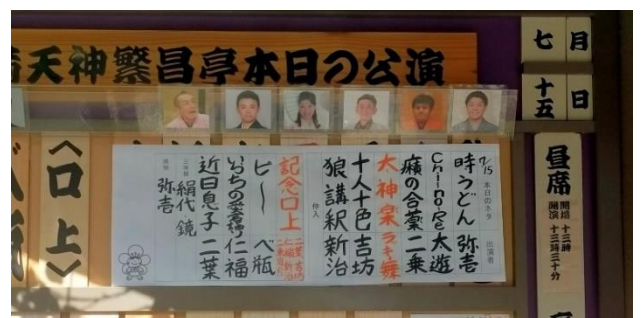 天神繁昌亭本日の公演
七月
十五日
昼席
開場 十三時
開演 十三時三十分
〈口上〉
7/15 本日のネタ 出演者
時うどん 弥壱
Chino-Re 太遊
癪の合薬 二乗
太神楽 ラッキー舞
十人十色 吉坊
狼講釈 新治
仲入
記念口上 二葉 吉坊 仁福 新治
ビ〜 べ瓶
いらちの愛宕詣り 仁福
近日息子 二葉
三味線 絹代・鏡
鳴物 弥壱